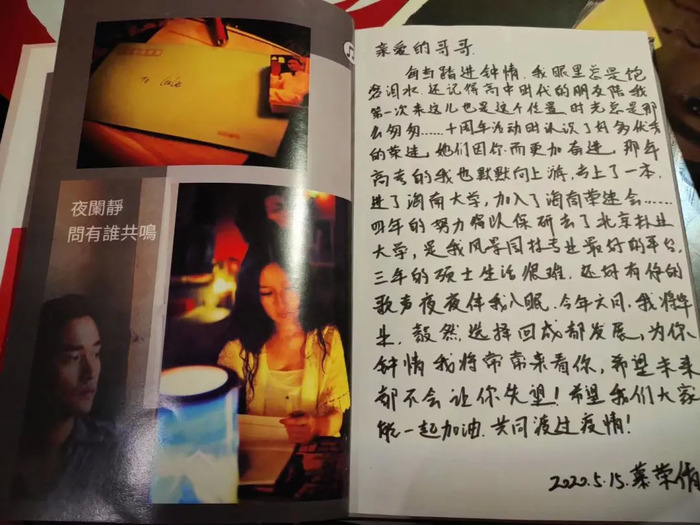 To Leslie
夜闌靜
問有誰共鳴
亲爱的哥哥
每当踏进钟情,我眼里总是饱
含泪水.还记得高中时代的朋友陪我
第一次来这儿也是这个位置,时光总是那
么匆匆……十周年活动时认识了好多优秀
的荣迷,他们因你而更加奋进,那年
高考的我也默默向上游,考上了一本,
进了海南大学,加入了海南荣迷会……
四年的努力得以保研去了北京林业
大学,是我风景园林专业最好的平台,
三年的硕士生活很难,还好有你的
歌声夜夜伴我入眠.今年六月,我将毕
业.毅然选择回成都发展,为你
钟情我将常常来看你,希望未来
都不会让你失望!希望我们大家
能一起加油.共同渡过疫情!
2020.5.15.荣俏